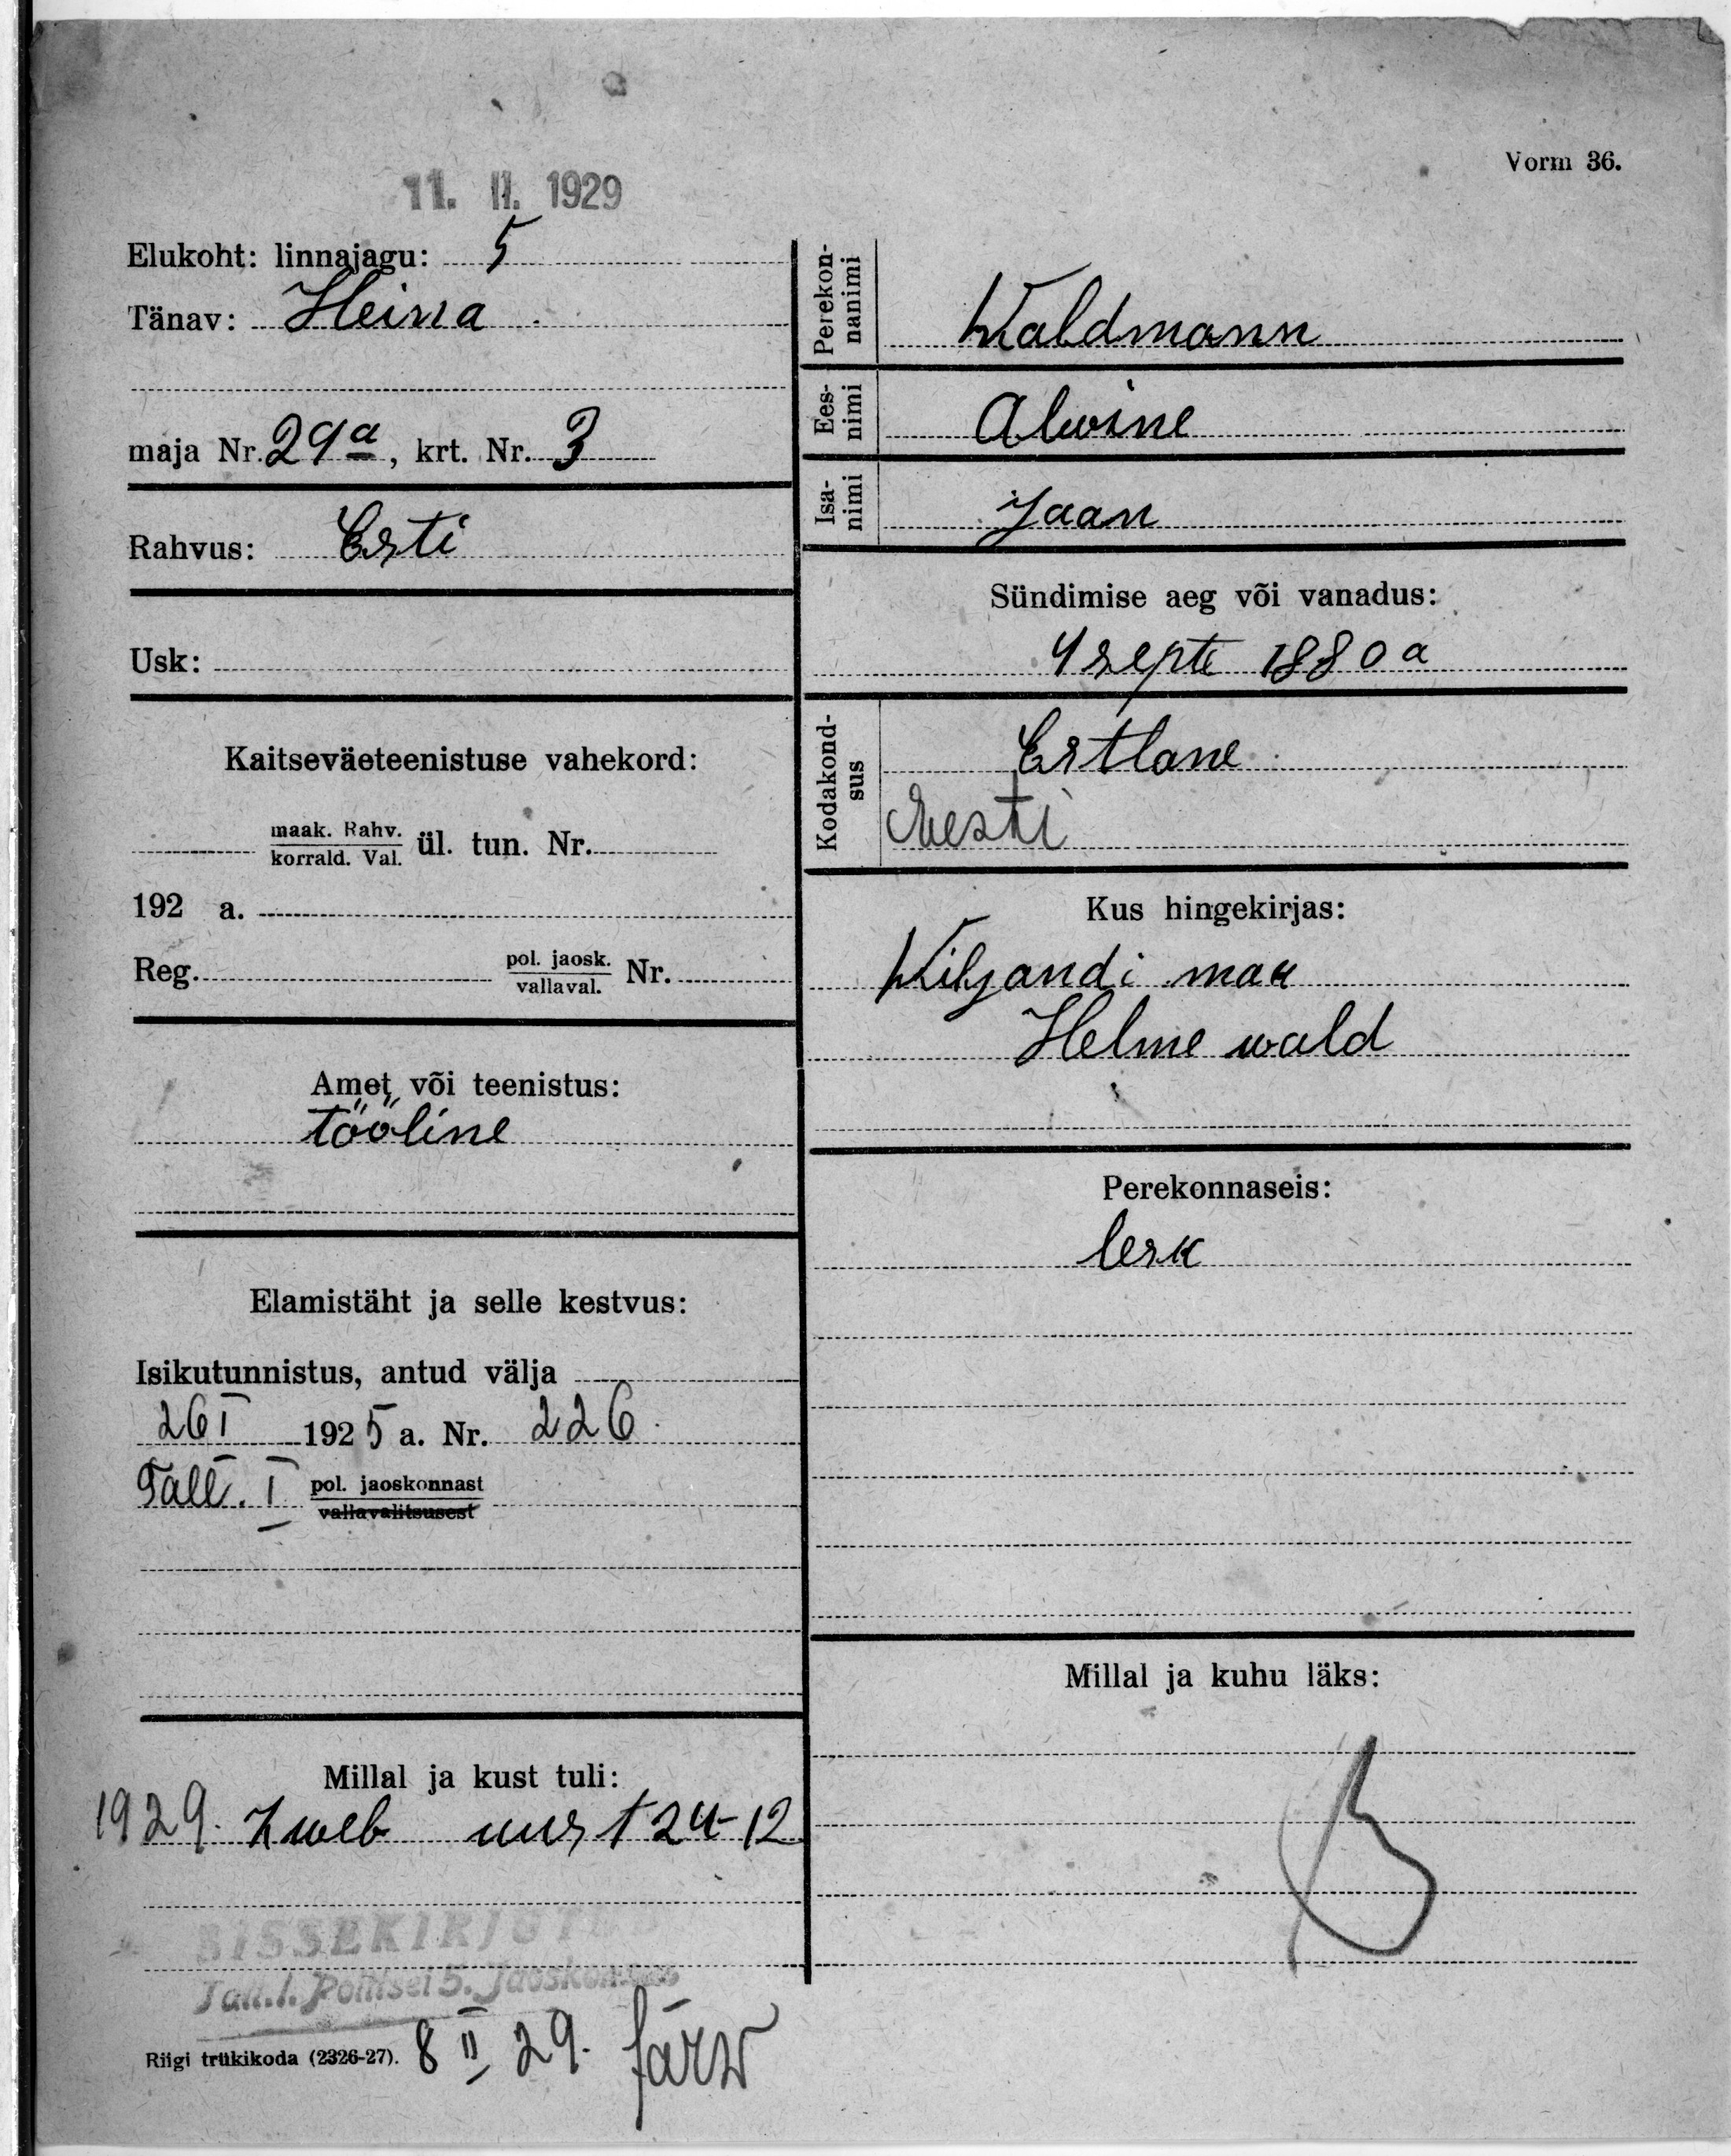 Vorm 36.
11. II. 1929
Elukoht: linnajagu: 5
Tänav: Heina
maja Nr. 29a, krt. Nr. 3
Rahvus: Esti
Usk:
Kaitseväeteenistuse vahekord:
maak. Rahv.
korrald. Val. ül. tun. Nr.
192 a.
Reg. pol. jaosk.
vallaval. Nr.
Amet või teenistus:
tööline
Elamistäht ja selle kestvus:
Isikutunnistus, antud välja
26 I 1925 a. Nr. 226.
Tall. I pol. jaoskonnast
vallavalitsusest
Millal ja kust tuli:
1929. 7 web uus t 24-12
SISSEKIRJUTUD
Tall.l. Politsei 5. Jaoskonnas
Riigi trükikoda (2326-27). 8 II 29. Järw
Perekon-
nanimi
Waldmann
Ees-
nimi
Alwine
Isa-
nimi
Jaan
Sündimise aeg või vanadus:
4 septe 1880 a
Kodakond-
sus
Estlane
Eesti
Kus hingekirjas:
Wiljandi maa
Helme wald
Perekonnaseis:
lesk
Millal ja kuhu läks: